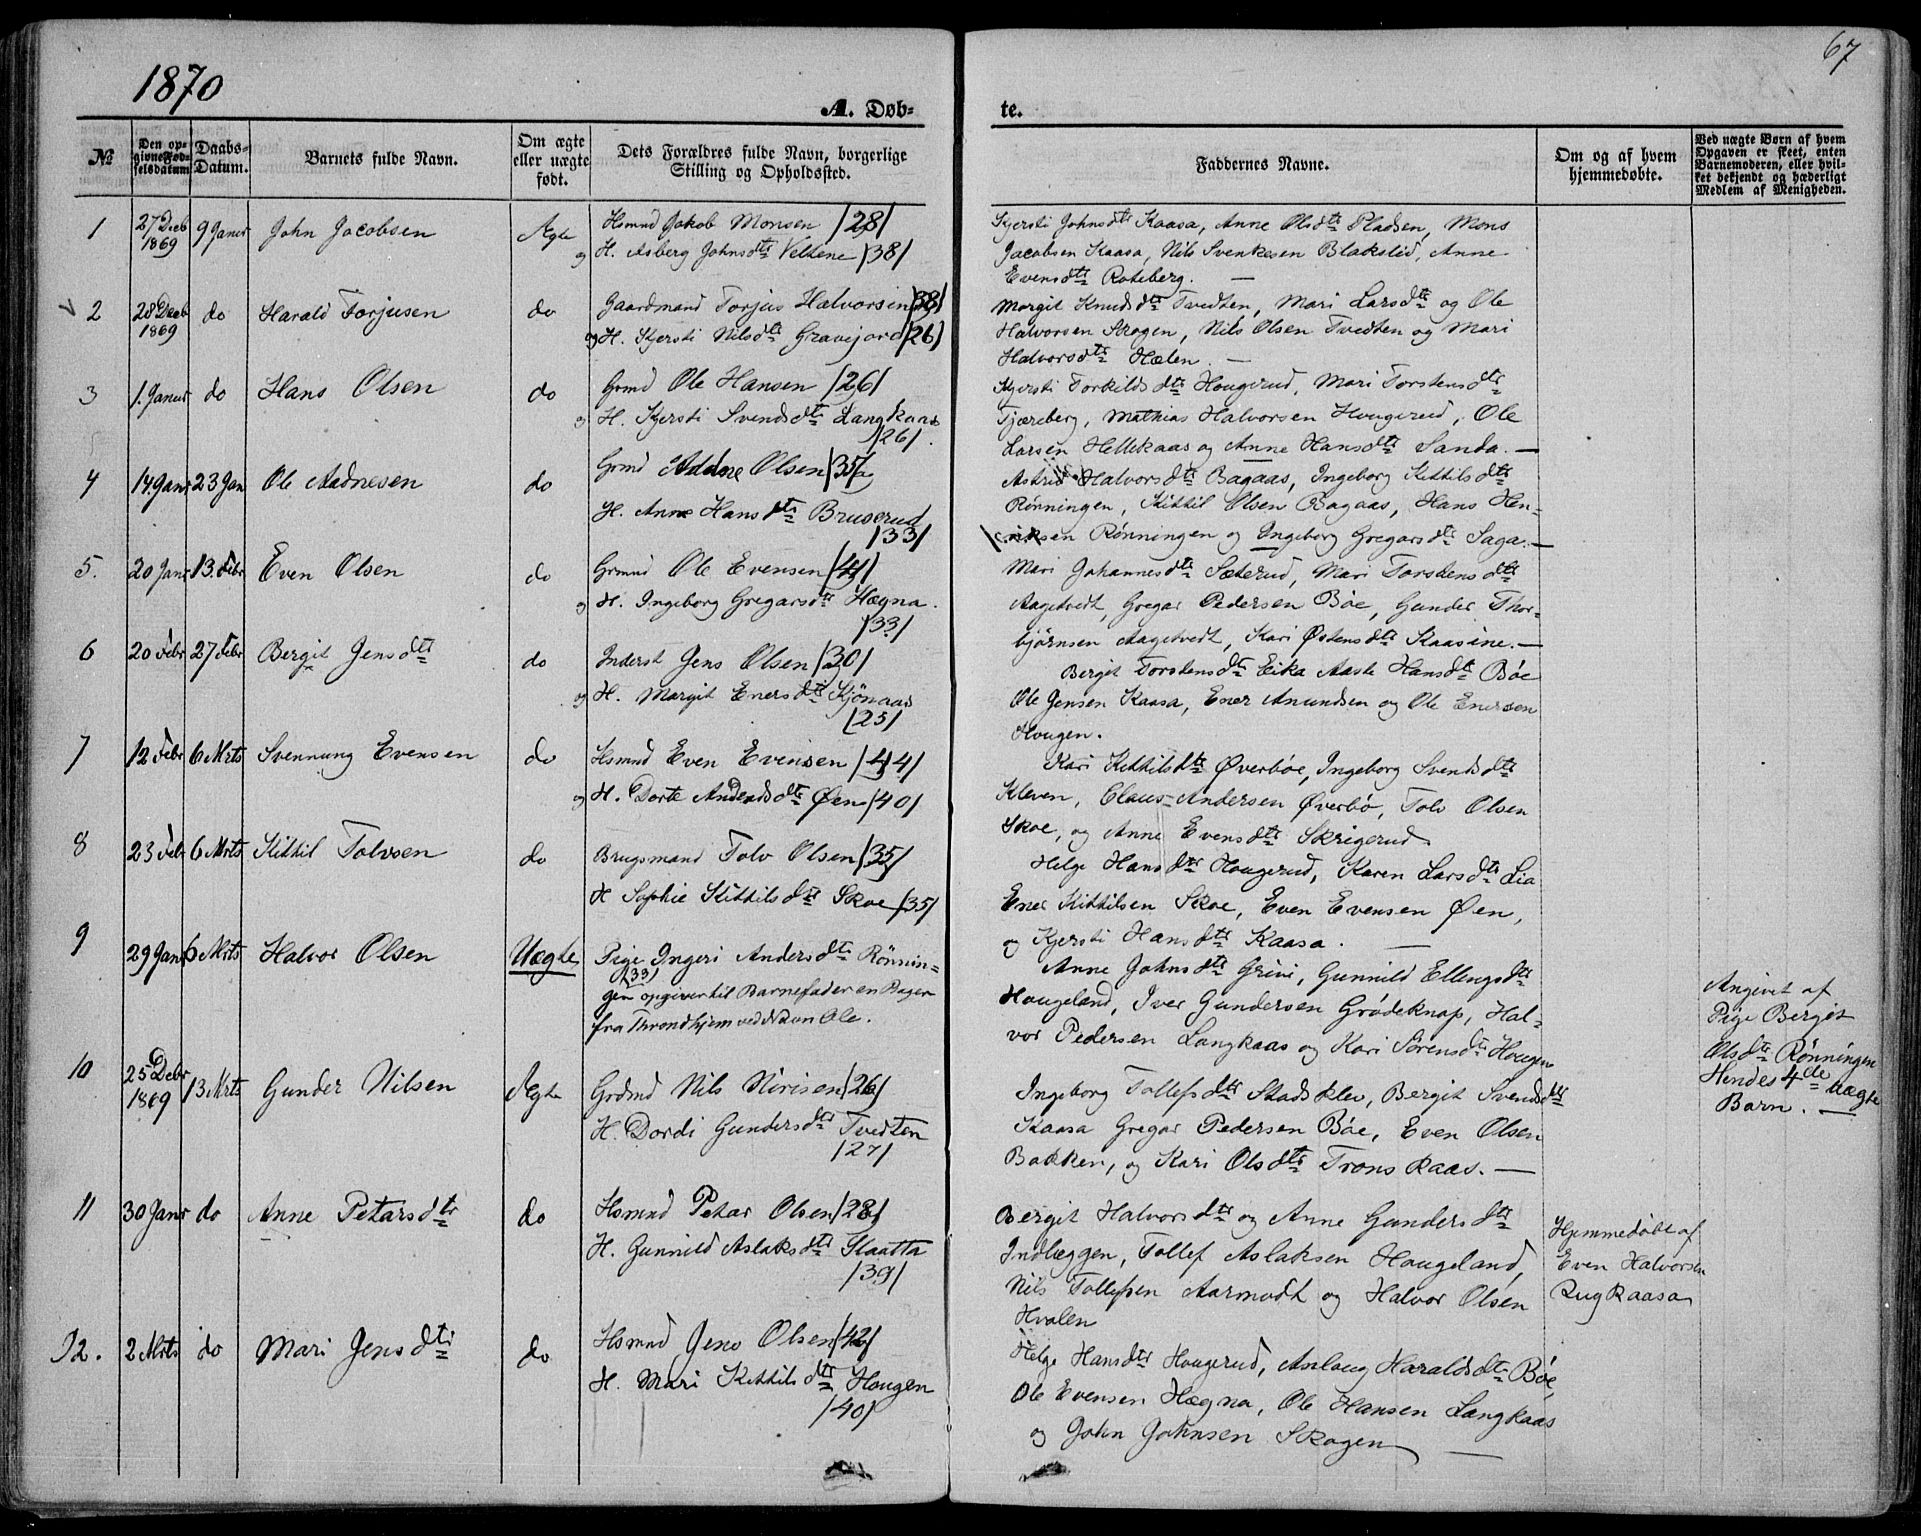 1870
67
A. Døb-
te.
№
Den op-
givne Fød-
selsdatum
Daabs-
Datum.
Barnets fulde Navn.
Om ægte
eller uægte
født.
Dets Forældres fulde Navn, borgerlige
Stilling og Opholdssted.
Faddernes Navne.
Om og af hvem
hjemmedøbte.
Ved uægte Børn af hvem
Opgaven er skeet, enten
Barnemoderen, eller hvil-
ket bekjendt og hæderligt
Medlem af Menigheden.
1
27 Decb
1869
9 Janur
John Jacobsen
Ægte
Hsmnd Jakob Monsen /28/
og H. Asberg Johnsdtr Veltene /38/
Kjersti Johnsdtr Kaasa, Anne Olsdtr Pladsen, Mons
Jacobsen Kaasa, Nils Svenkesen Blakstid, Anne
Evensdtr Roteberg. —
2
28 Decb
1869
do
Harald Torjusen
do
Gaardmand Torjus Halvorsen /38/
og H. Kjersti Nilsdtr Gravejord /26/
Margit Knudsdtr Tvedten, Mari Larsdtr og Ole
Halvorsen Skogen, Nils Olsen Tvedten og Mari
Halvorsdtr Hælen. —
3
1. Janur
do
Hans Olsen
do
Grmd Ole Hansen /26/
og H. Kjersti Svendsdtr Langkaas
/26/.
Kjersti Torkildsdtr Hougerud, Mari Torstensdtr
Tjæreberg, Mathias Halvorsen Hougerud, Ole
Larsen Hellekaas og Anne Hansdtr Sanda. —
4
14. Janr
23 Jan
Ole Aadnesen
do
Grmd Addne Olsen /35/
H. Anne Hansdtr Bruserud
/33/
Astrid Halvorsdtr Bagaas, Ingeborg Kittilsdtr
Rønningen, Kittil Olsen Bagaas, Hans Hen-
riksen Rønningen og Ingeborg Gregarsdtr Saga. —
5.
20 Janr
13. Febr
Even Olsen
do
Grmnd Ole Evensen /41/
og H. Ingeborg Gregarsdtr Hægna.
/33/
Mari Johannesdtr Sæterud, Mari Torstensdtr
Aagetvedt, Gregar Pedersen Bøe, Gunder Thor-
bjørnsen Aagetvedt, Kari Østensdtr Kaasine. —
6
20 Febr
27 Febr
Bergit Jensdtr
do
Inderst Jens Olsen /30/
og H. Margit Enersdtr Kjönaas
/25/
Bergit Torstensdtr Eika Aaste Hansdtr Bøe
Ole Jensen Kaasa, Ener Anundsen og Ole Enersen
Hougen.
7
12 Febr
6 Mrts
Svennung Evensen
do
Hsmnd Even Evensen /44/
og H. Dorte Andersdtr Øen /40/
Kari Kittilsdtr Øverbøe, Ingeborg Svendsdtr
Kleven, Claus Andersen Øverbø, Tolv Olsen
Skoe, og Anne Evensdtr Skrigerud
8
23 Febr
6 Mrts
Kittil Tolvsen
do
Brugsmand Tolv Olsen /35/
H Sophie Kittilsdtr Skoe /35/
Helge Hansdtr Hougerud, Karen Larsdtr Lia
Ener Kittilsen Skoe, Even Evensen Øen,
og Kjersti Hansdtr Kaasa. —
9
29 Janr
6 Mrts
Halvor Olsen
Uægte
Pige Ingeri Andersdtr Rønnin-
/33/
gen opgiver til Barnefader en Bager
fra Throndhjem ved Navn Ole.
Anne Johnsdtr Grini, Gunnild Ellingsdtr
Hougeland, Iver Gundersen Grødeknap, Hal-
vor Pedersen Langkaas og Kari Sørensdtr Hougen
Angivet af
Pige Bergit
Olsdtr Rønningen
Hendes 4de uægte
Barn. —
10
25 Debr
1869
13 Mrts
Gunder Nilsen
Ægte
Grdmd Nils Nirisen /26/
H. Dordi Gundersdtr Tvedten
/27/
Ingeborg Tollefsdtr Stadsklev, Bergit Svendsdtr
Kaasa Gregar Pedersen Bøe, Even Olsen
Bakken, og Kari Olsdtr Tronskaas. —
11
30 Janr
do
Anne Petarsdtr
do
Hsmnd Petar Olsen /28/
H. Gunnild Aslaksdtr Slaatta
/39/
Bergit Halvorsdtr og Anne Gundersdtr
Indlæggen, Tollef Aslaksen Hougeland,
Nils Tollefsen Aarmodt og Halvor Olsen
Hvalen
Hjemmedøbt af
Even Halvorsen
Rugkaasa
12.
2 Mrts
do
Mari Jensdtr
do
Hsmnd Jens Olsen /42/
H. Mari Kittilsdtr Hougen
/40/
Helge Hansdtr Hougerud, Aslaug Haraldsdtr Bøe,
Ole Evensen Hægna, Ole Hansen Langkaas
og John Johnsen Skogen —